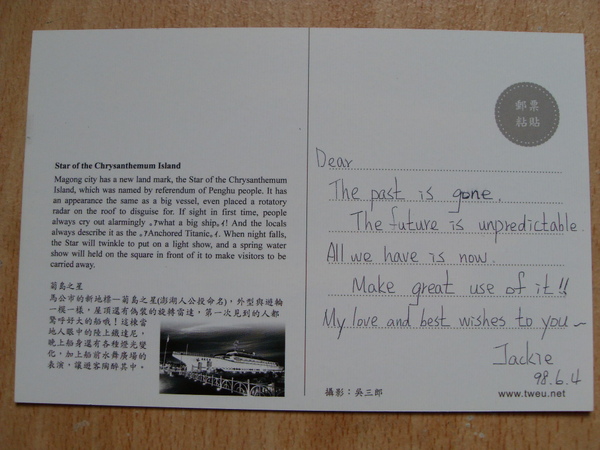 Star of the Chrysanthemum Island
Magong city has a new land mark, the Star of the Chrysanthemum
Island, which was named by referendum of Penghu people. It has
an appearance the same as a big vessel, even placed a rotatory
radar on the roof to disguise for. If sight in first time, people
always cry out alarmingly what a big ship ! And the locals
always describe it as the Anchored Titanic . When night falls,
the Star will twinkle to put on a light show, and a spring water
show will held on the square in front of it to make visitors to be
carried away.
菊島之星
馬公市的新地標—菊島之星(澎湖人公投命名),外型與遊輪
一模一樣,屋頂還有偽裝的旋轉雷達,第一次見到的人都
驚呼好大的船哦!這棟當
地人眼中的陸上鐵達尼,
晚上船身還有各種燈光變
化,加上船前水舞廣場的
表演,讓遊客陶醉其中。
郵票
黏貼
Dear
The past is gone.
The future is unpredictable.
All we have is now.
Make great use of it!!
My love and best wishes to you~
Jackie
98.6.4
攝影:吳三郎
www.tweu.net